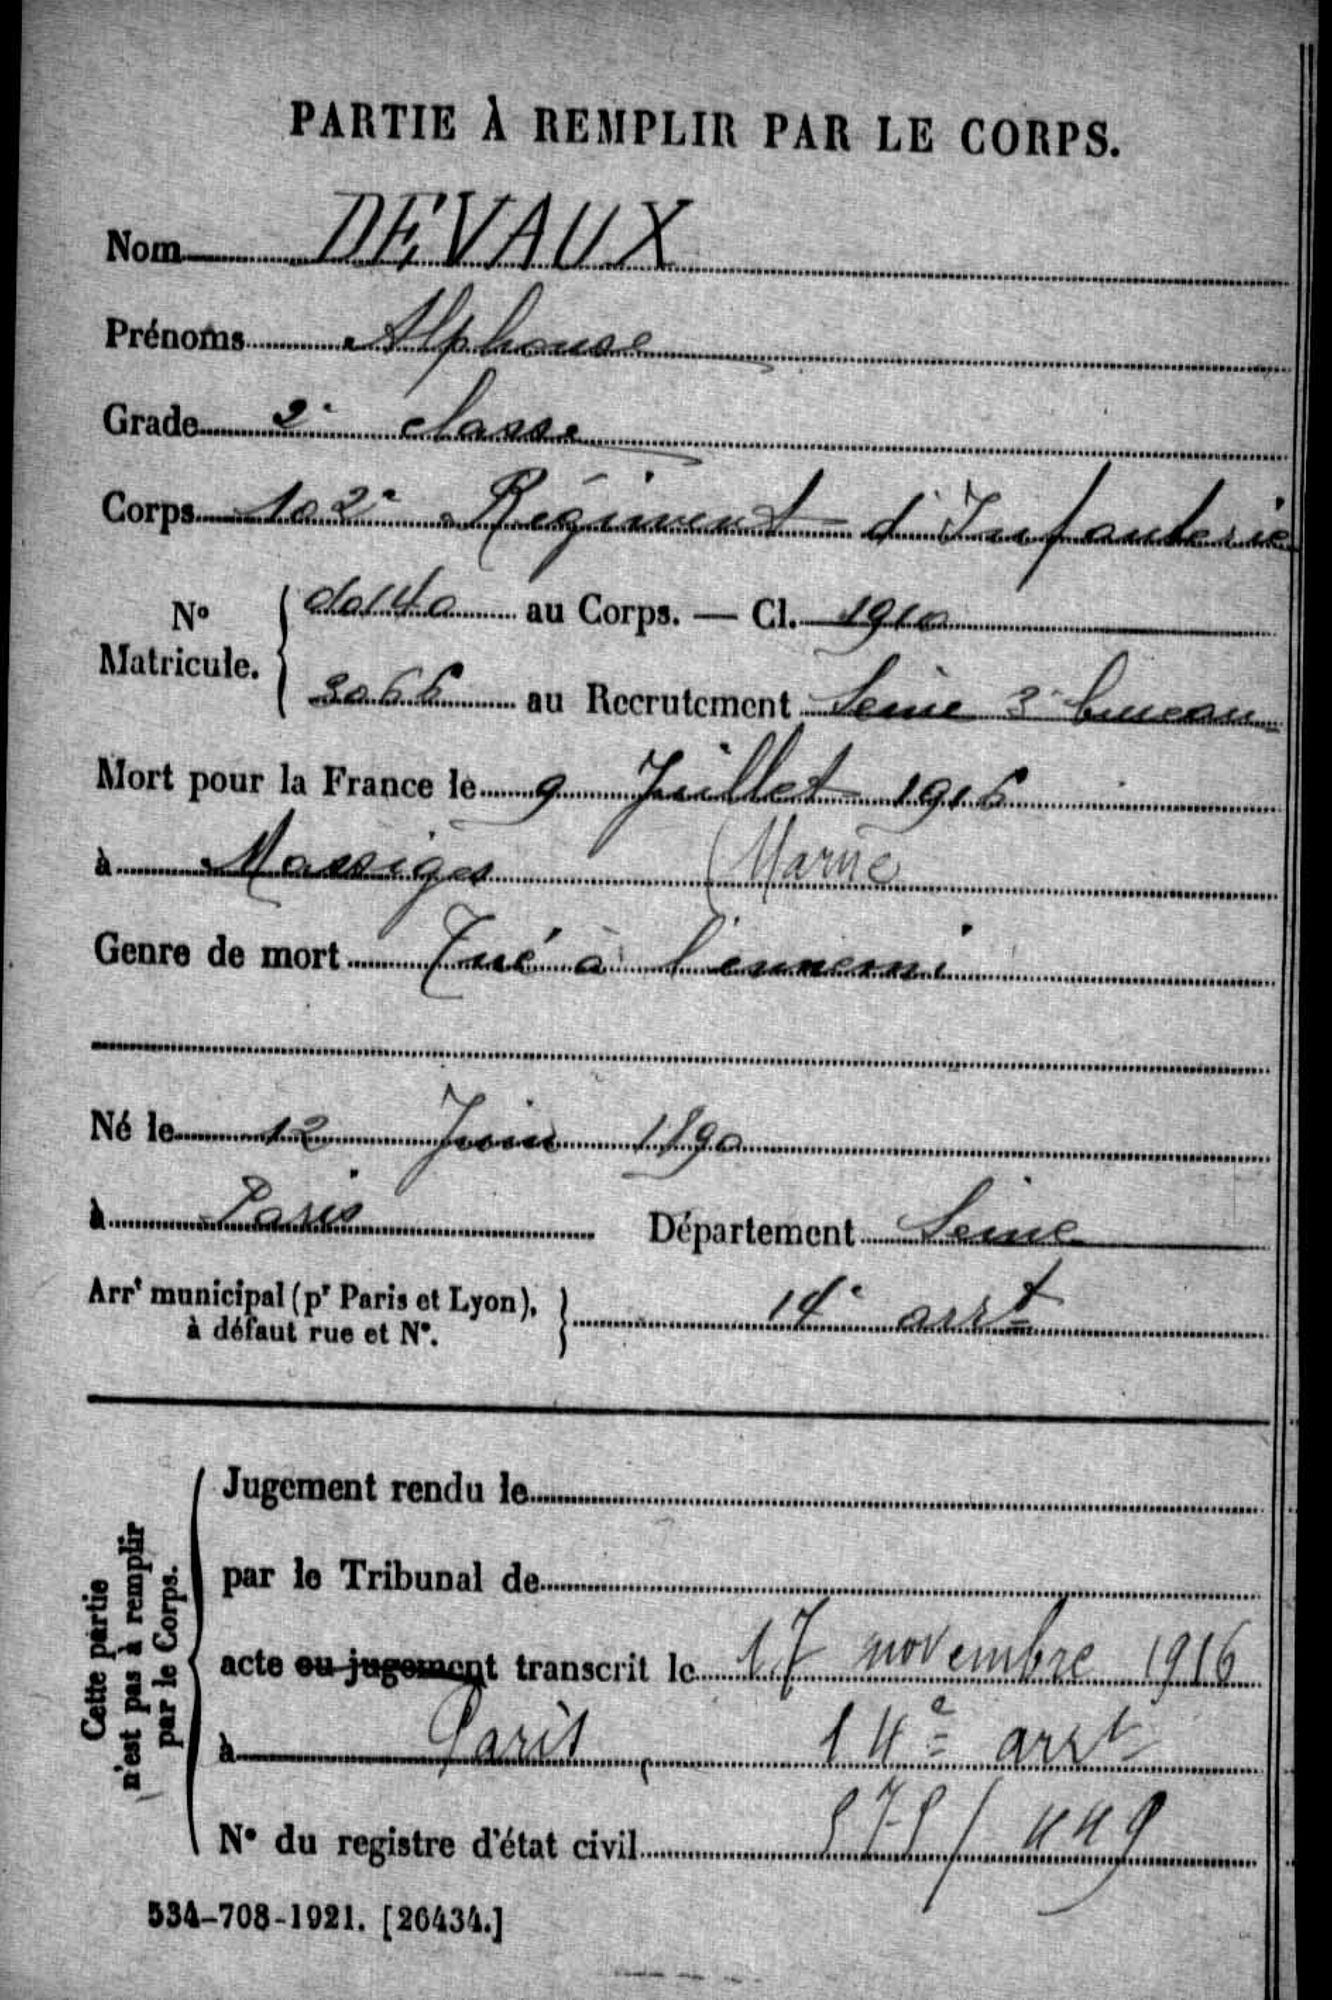 PARTIE À REMPLIR PAR LE CORPS.
Nom DEVAUX
Prénoms Alphonse
Grade 2e classe
Corps 102e Régiment d'Infanterie
No Matricule. au Corps. — Cl. 1910
3066 au Recrutement Seine 3e bureau
Mort pour la France le 9 Juillet 1916
à Massiges (Marne
Genre de mort Tué à l'ennemi
Né le 12 Juin 1890
à Paris Département Seine
Arrt municipal (pr Paris et Lyon), à défaut rue et No. 14e arrt
Cette partie n'est pas à remplir par le Corps.
Jugement rendu le
par le Tribunal de
acte ou jugement transcrit le 17 novembre 1916
à Paris, 14e arrt
No du registre d'état civil
534-708-1921. [26434.]